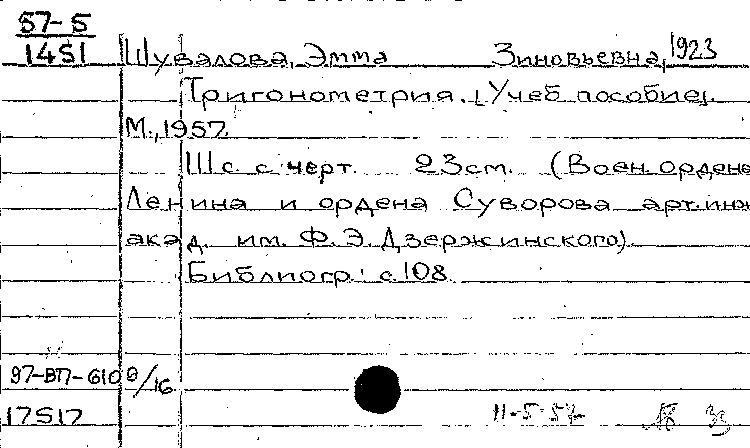 57-5
1451
Шувалова, Эмма Зиновьевна, 1923
Тригонометрия. [Учеб. пособие].
М., 1957.
111 с. с черт. 23 см. (Воен. ордена
Ленина и ордена Суворова арт. инж.
акад. им. Ф. Э. Дзержинского)
Библиогр.: с. 108
97-ВП-6100/16
17517 11-5-57